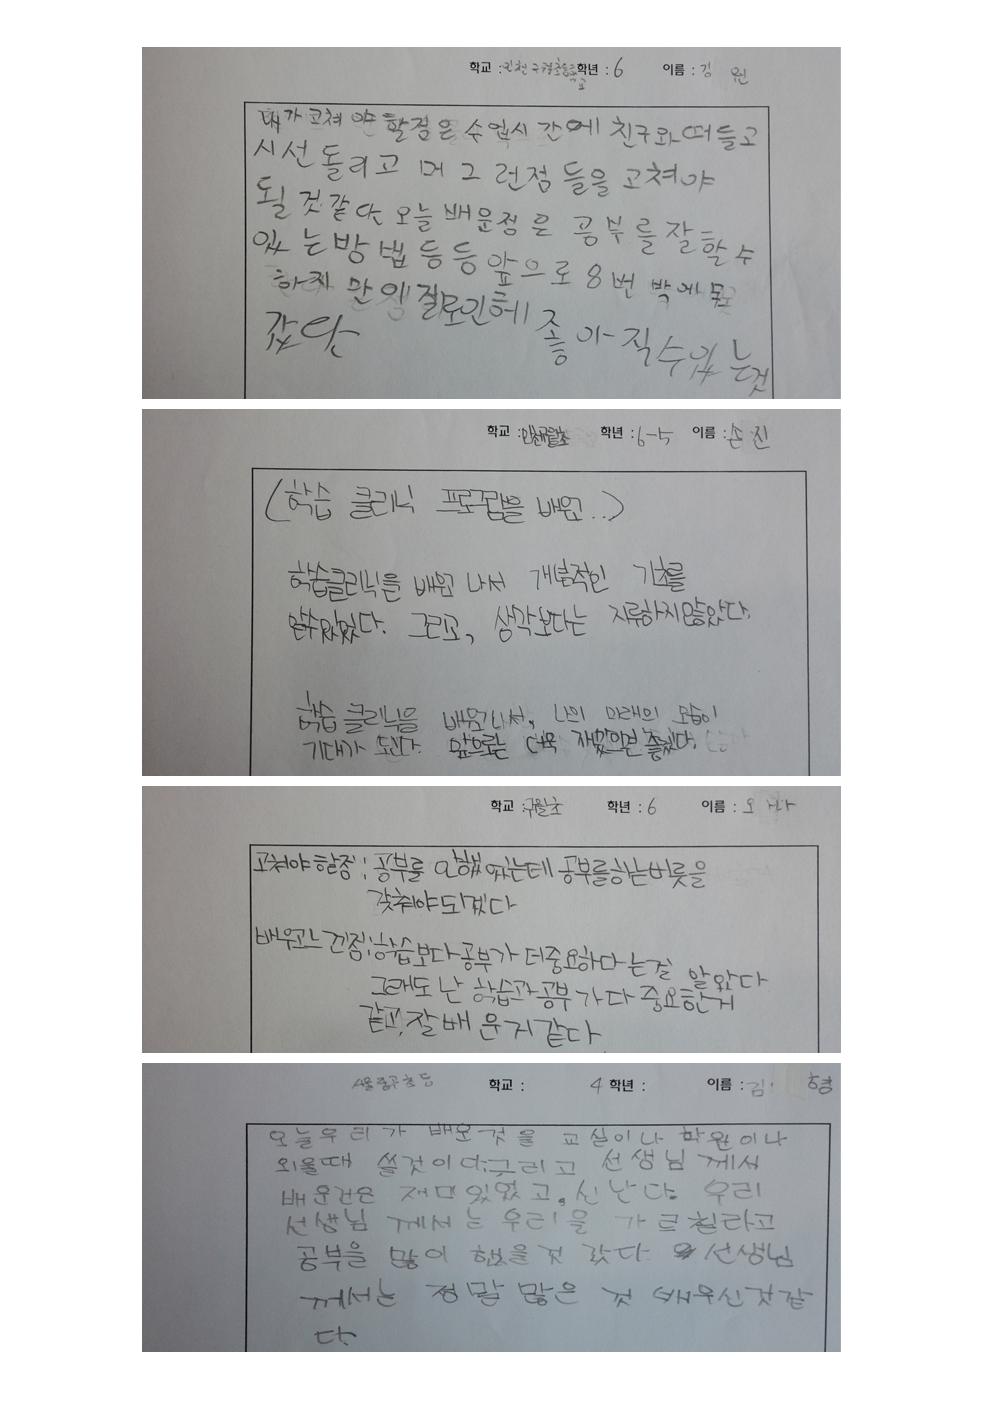 학교 : 인천구월초등학교 학년 : 6 이름 : 김 원
내가 고쳐야 할점은 수업시간에 친구와 떠들고
시선 돌리고 머 그런점 들을 고쳐야
될 것같다 오늘 배운점은 공부를 잘할수
있는방법등등 앞으로 8번 박에 못
하지만 질로인해 좋아직수있는것
갔다
학교 : 인천구월초 학년 : 6-5 이름 : 손 진
(학습 클리닉 프로그램을 배워..)
학습클리닉을 배워 나서 개념적인 기초를
알수있었다. 그리고, 생각보다는 지루하지않았다.
학습 클리닉을 배워나서, 나의 미래의 모습이
기대가 된다. 앞으로는 더욱 재밌의면 좋겠다.
학교 : 구월초 학년 : 6 이름 : 오
고쳐야할점 : 공부를 안했있는데 공부를하는버릇을
갖춰야되겠다
배우고느낀점 : 학습보다공부가 더중요하다는걸 알았다
그래도 난 학습과공부가다 중요한거
같고, 잘배운거같다
서울중구초등 학교 : 4 학년 : 이름 : 김 형
오늘우리가 배오것을 교실이나 학원이나
외울때 쓸것이다.그리고 선생님께서
배운건은 재미있었고, 신난다. 우리
선생님께서는 우리를 가르칠라고
공부을 많이 했을것 갔다. 선생님
께서는 정말 많은 것 배우신것같
다